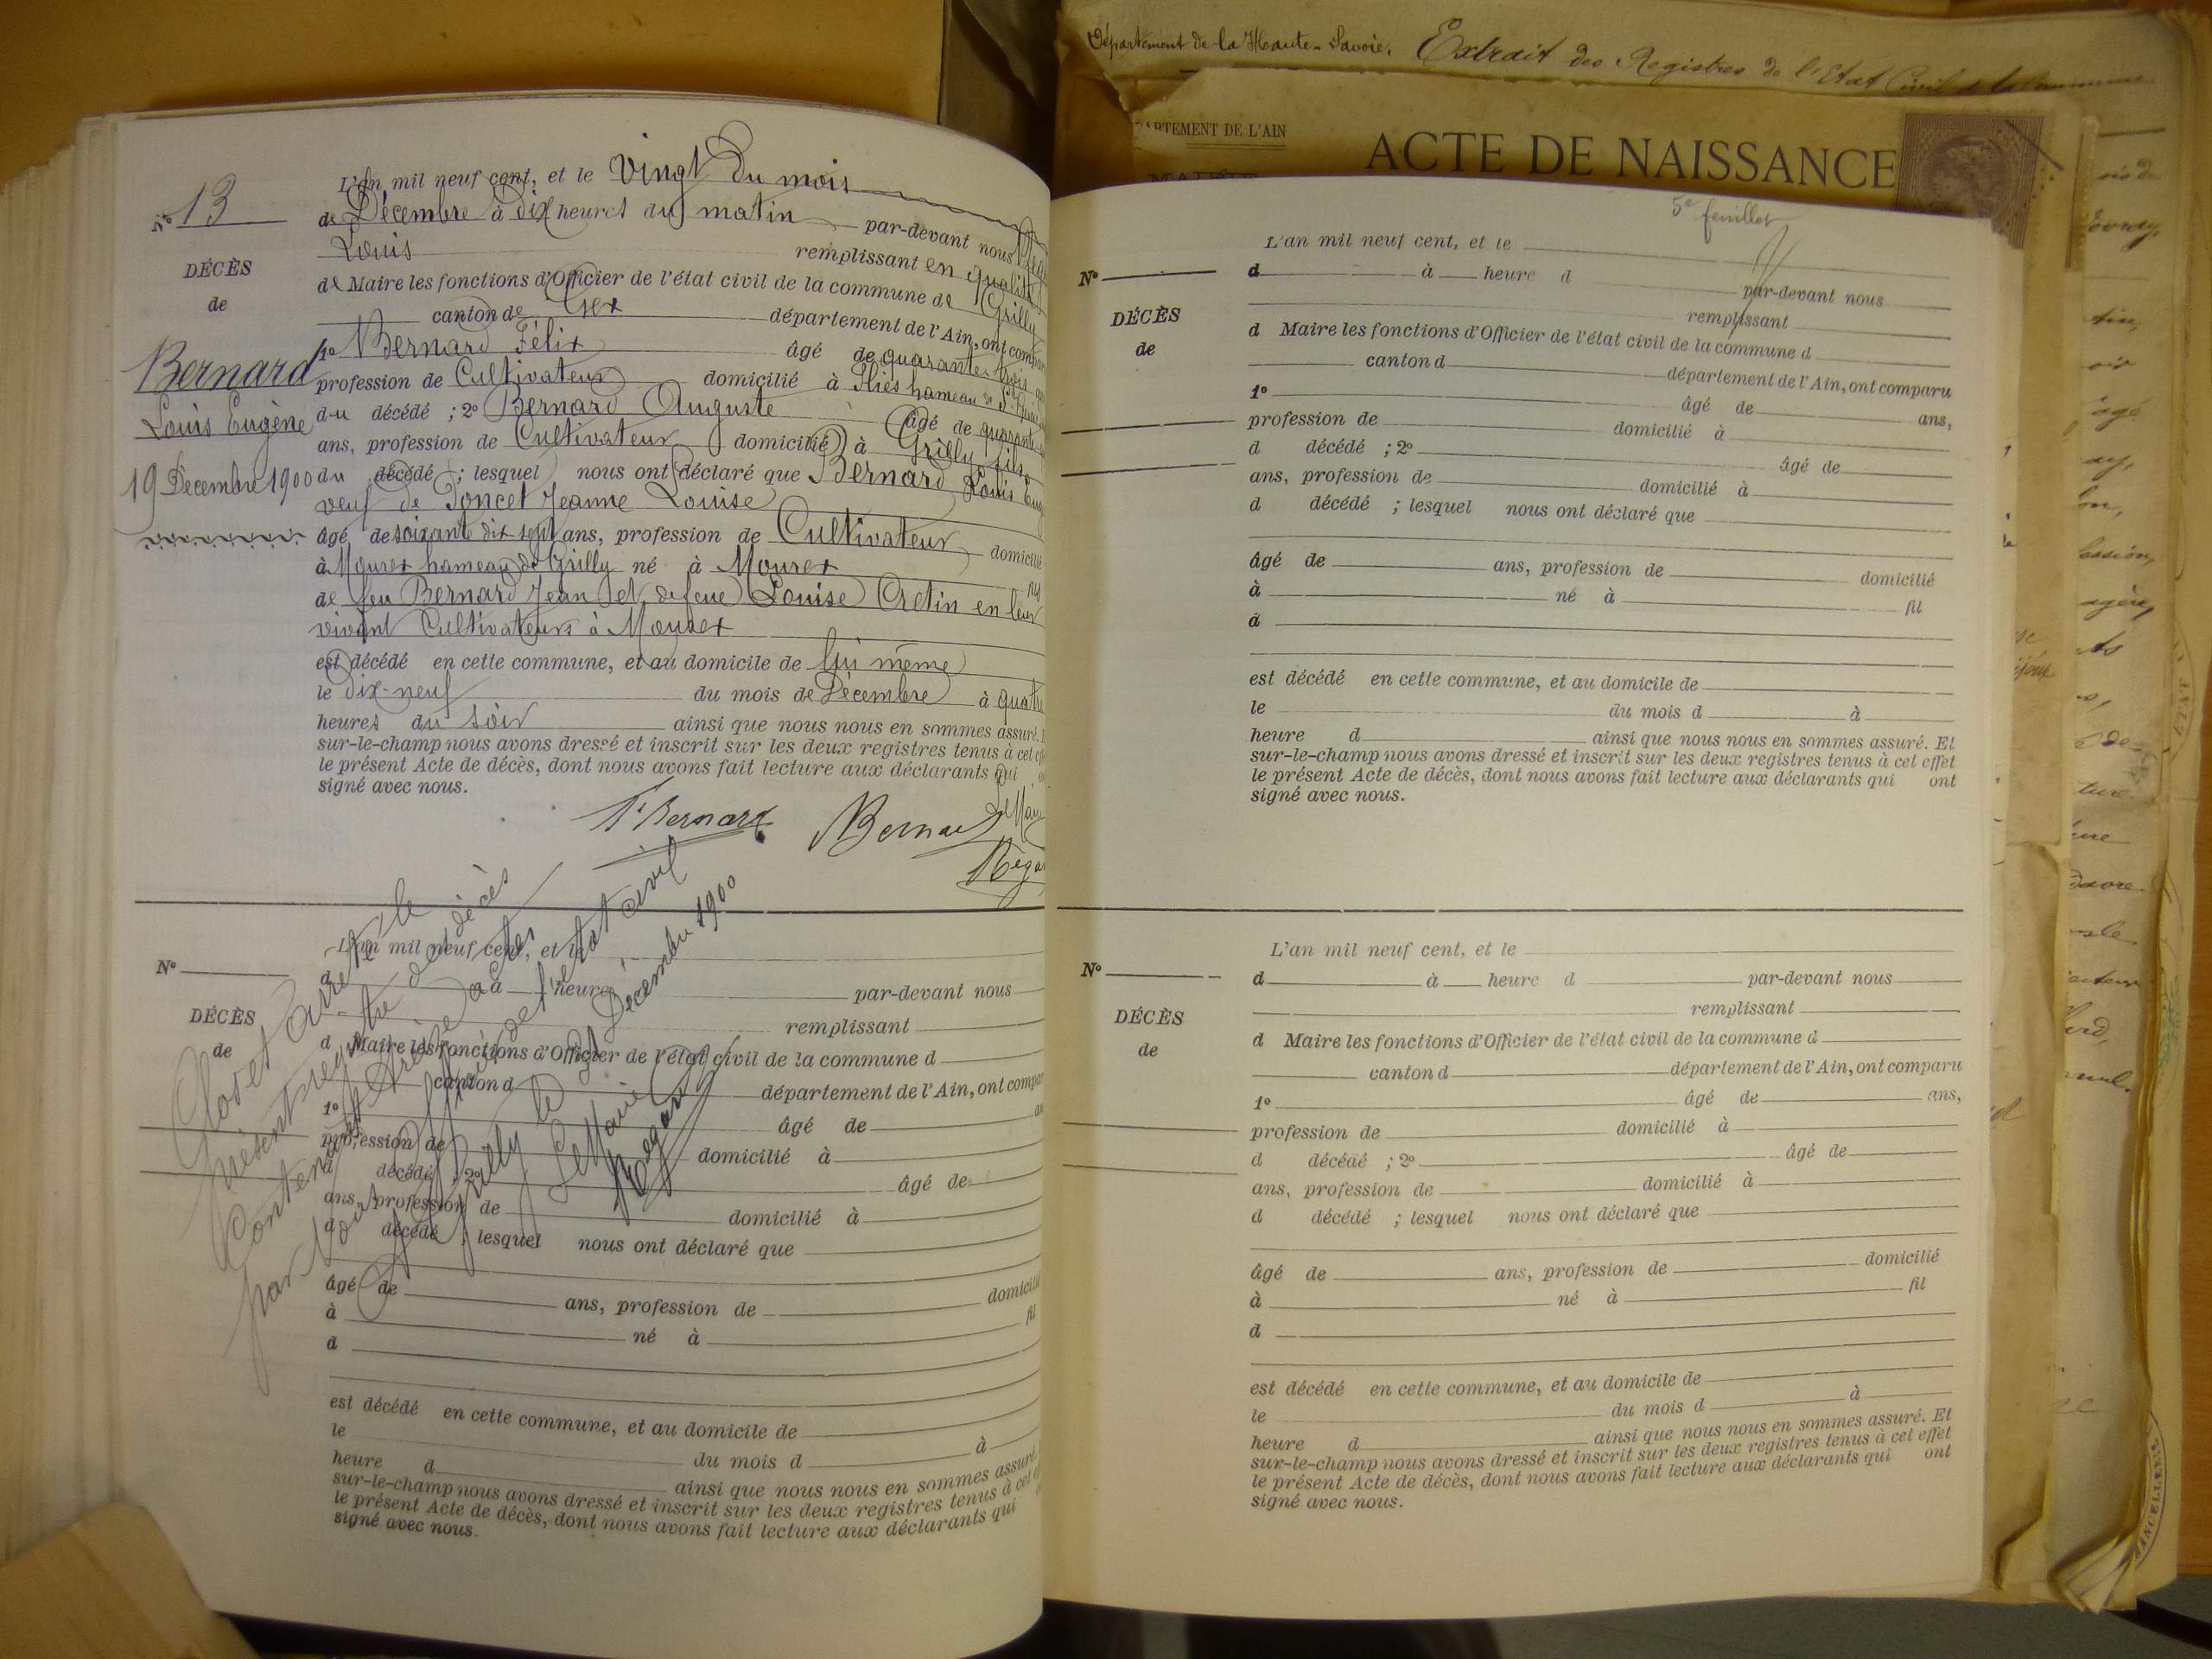 Département de la Haute-Savoie. Extrait des Registres de l'Etat Civil de la Commune
ARTEMENT DE L'AIN
ACTE DE NAISSANCE
N° 13
DÉCÈS
de
Bernard
Louis Eugène
19 Décembre 1900
L'an mil neuf cent, et le Vingt du mois
de Décembre à dix heures du matin par-devant nous
Louis remplissant en qualité
de Maire les fonctions d'Officier de l'état civil de la commune de Grilly
canton de Gex département de l'Ain, ont compar
1° Bernard Félix âgé de quarante-trois
profession de Cultivateur domicilié à hameau de
du décédé ; 2° Bernard Auguste âgé de quarante
ans, profession de Cultivateur domicilié à Grilly, fils
du décédé ; lesquel nous ont déclaré que Bernard Louis Eug
veuf de Poncet Jeanne Louise
âgé de soixante dix-sept ans, profession de Cultivateur domicilié
à Mourex hameau de Grilly né à Mourex fil
de feu Bernard Jean et de feue Louise Cretin en leur
vivant Cultivateurs à Mourex
est décédé en cette commune, et au domicile de lui même
le dix-neuf du mois de Décembre à quatre
heures du soir ainsi que nous nous en sommes assuré.
sur-le-champ nous avons dressé et inscrit sur les deux registres tenus à cet eff
le présent Acte de décès, dont nous avons fait lecture aux déclarants qui
signé avec nous.
F. Bernard Bernard Le Maire
Rega
N°
DÉCÈS
de
L'an mil neuf cent, et le
d à heure par-devant nous
remplissant
d Maire les fonctions d'Officier de l'état civil de la commune d
canton d département de l'Ain, ont compar
1° âgé de an
profession de domicilié à
d décédé ; 2° âgé de
ans, profession de domicilié à
d décédé ; lesquel nous ont déclaré que
âgé de ans, profession de domicilié
à né à fil
d
est décédé en cette commune, et au domicile de
le du mois d à
heure d ainsi que nous nous en sommes assuré.
sur-le-champ nous avons dressé et inscrit sur les deux registres tenus à cet ef
le présent Acte de décès, dont nous avons fait lecture aux déclarants qui
signé avec nous.
Clos et arrêté le
présent registre de décès
Contenant treize actes
par Nous Maire de l'état civil
Grilly le 31 Décembre 1900
Le Maire
5e feuillet
N°
DÉCÈS
de
L'an mil neuf cent, et le
d à heure d par-devant nous
remplissant
d Maire les fonctions d'Officier de l'état civil de la commune d
canton d département de l'Ain, ont comparu
1° âgé de ans,
profession de domicilié à
d décédé ; 2° âgé de
ans, profession de domicilié à
d décédé ; lesquel nous ont déclaré que
âgé de ans, profession de domicilié
à né à fil
d
est décédé en cette commune, et au domicile de
le du mois d à
heure d ainsi que nous nous en sommes assuré. Et
sur-le-champ nous avons dressé et inscrit sur les deux registres tenus à cet effet
le présent Acte de décès, dont nous avons fait lecture aux déclarants qui ont
signé avec nous.
N°
DÉCÈS
de
L'an mil neuf cent, et le
d à heure d par-devant nous
remplissant
d Maire les fonctions d'Officier de l'état civil de la commune d
canton d département de l'Ain, ont comparu
1° âgé de ans,
profession de domicilié à
d décédé ; 2° âgé de
ans, profession de domicilié à
d décédé ; lesquel nous ont déclaré que
âgé de ans, profession de domicilié
à né à fil
d
est décédé en cette commune, et au domicile de
le du mois d à
heure d ainsi que nous nous en sommes assuré. Et
sur-le-champ nous avons dressé et inscrit sur les deux registres tenus à cet effet
le présent Acte de décès, dont nous avons fait lecture aux déclarants qui ont
signé avec nous.